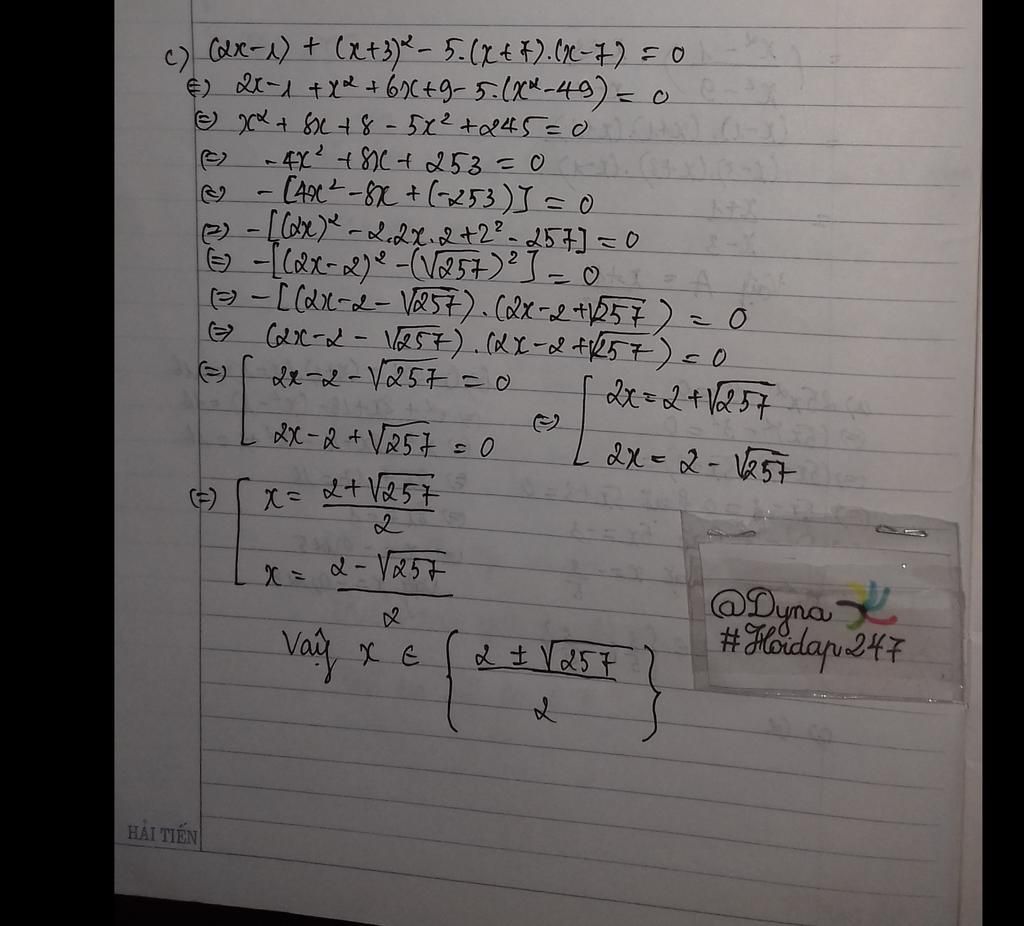 c) (2x-1) + (x+3)² - 5.(x+7).(x-7) = 0
(=) 2x-1 + x² + 6x+9 - 5.(x²-49) = 0
(=) x² + 8x + 8 - 5x² + 245 = 0
(=) -4x² + 8x + 253 = 0
(=) - [4x² - 8x + (-253)] = 0
(=) - [(2x)² - 2.2x.2 + 2² - 257] = 0
(=) - [(2x-2)² - (√257)²] = 0
(=) - [(2x-2-√257).(2x-2+√257) = 0
(=) (2x-2-√257).(2x-2+√257) = 0
(=) [ 2x-2-√257 = 0 (=) [ 2x = 2+√257
2x-2+√257 = 0 2x = 2-√257
(=) [ x = (2+√257)/2
x = (2-√257)/2
Vậy x ∈ { (2 ± √257)/2 }
@Dyna
#Hoidap247
HẢI TIẾN